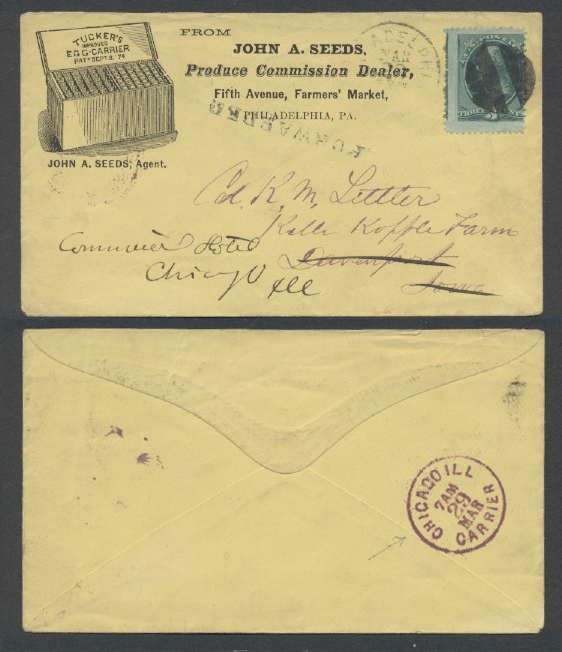 TUCKER'S
IMPROVED
EGG-CARRIER
PAT'D SEPT. 8, 74
JOHN A. SEEDS, Agent.
FROM
JOHN A. SEEDS,
Produce Commission Dealer,
Fifth Avenue, Farmers' Market,
PHILADELPHIA, PA.
ADELPHI
MAR
FORWARDED
U.S. POSTAGE
Col. R. M. Littler
Kelle Kopple Farm
Davenport
Iowa
Commercial Hotel
Chicago Ill
CHICAGO ILL
7 AM
29
MAR
CARRIER